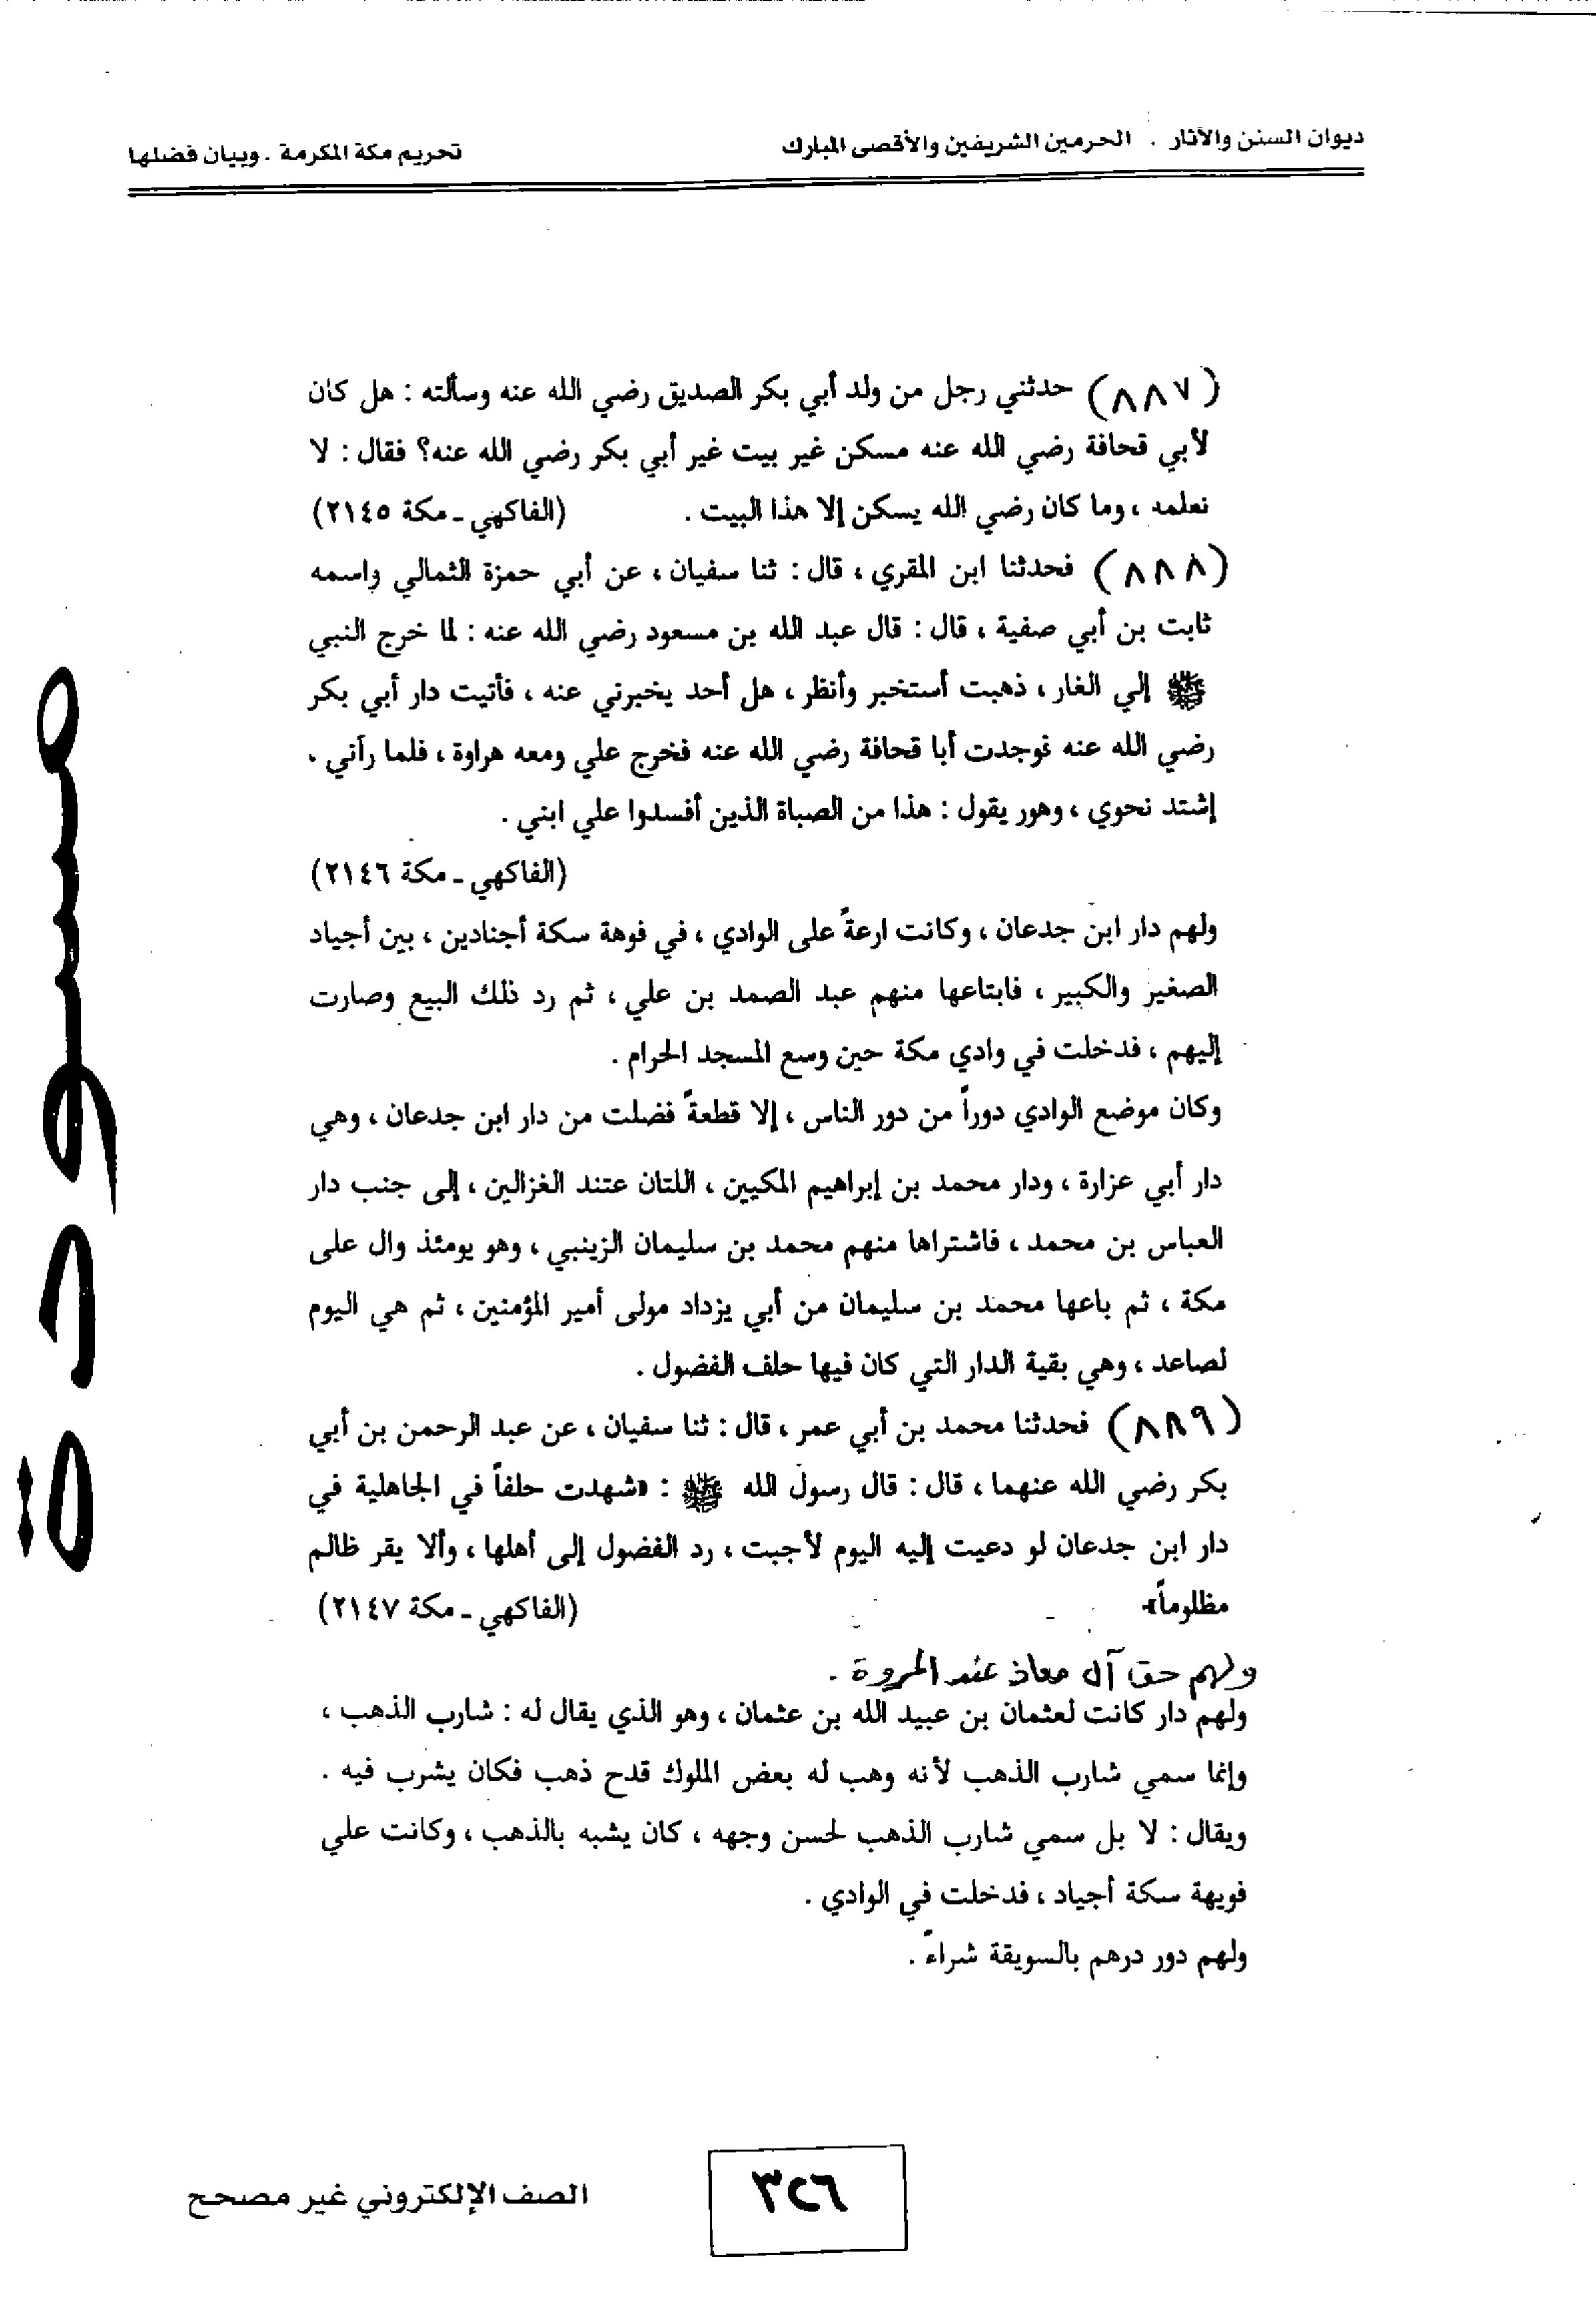 ديوان السنن والآثار . الحرمين الشريفين والأقصى المبارك
تحريم مكة المكرمة . وبيان فضلها
(٨٨٧) حدثني رجل من ولد أبي بكر الصديق رضي الله عنه وسألته : هل كان
لأبي قحافة رضي الله عنه مسكن غير بيت غير أبي بكر رضي الله عنه؟ فقال : لا
نعلمه ، وما كان رضي الله يسكن إلا هذا البيت . (الفاكهي ـ مكة ٢١٤٥)
(٨٨٨) فحدثنا ابن المقري ، قال : ثنا سفيان ، عن أبي حمزة الثمالي واسمه
ثابت بن أبي صفية ، قال : قال عبد الله بن مسعود رضي الله عنه : لما خرج النبي
ﷺ إلي الغار ، ذهبت أستخبر وأنظر ، هل أحد يخبرني عنه ، فأتيت دار أبي بكر
رضي الله عنه فوجدت أبا قحافة رضي الله عنه فخرج علي ومعه هراوة ، فلما رآني ،
إشتد نحوي ، وهور يقول : هذا من الصباة الذين أفسدوا علي ابني .
(الفاكهي ـ مكة ٢١٤٦)
ولهم دار ابن جدعان ، وكانت ارعةً على الوادي ، في فوهة سكة أجنادين ، بين أجياد
الصغير والكبير ، فابتاعها منهم عبد الصمد بن علي ، ثم رد ذلك البيع وصارت
إليهم ، فدخلت في وادي مكة حين وسع المسجد الحرام .
وكان موضع الوادي دوراً من دور الناس ، إلا قطعةً فضلت من دار ابن جدعان ، وهي
دار أبي عزارة ، ودار محمد بن إبراهيم المكيين ، اللتان عتند الغزالين ، إلى جنب دار
العباس بن محمد ، فاشتراها منهم محمد بن سليمان الزينبي ، وهو يومئذ وال على
مكة ، ثم باعها محمد بن سليمان من أبي يزداد مولى أمير المؤمنين ، ثم هي اليوم
لصاعد ، وهي بقية الدار التي كان فيها حلف الفضول .
(٨٨٩) فحدثنا محمد بن أبي عمر ، قال : ثنا سفيان ، عن عبد الرحمن بن أبي
بكر رضي الله عنهما ، قال : قال رسول الله ﷺ : «شهدت حلفاً في الجاهلية في
دار ابن جدعان لو دعيت إليه اليوم لأجبت ، رد الفضول إلى أهلها ، وألا يقر ظالم
مظلوماً» (الفاكهي ـ مكة ٢١٤٧)
ولهم حق آل معاذ عند المروة .
ولهم دار كانت لعثمان بن عبيد الله بن عثمان ، وهو الذي يقال له : شارب الذهب ،
وإنما سمي شارب الذهب لأنه وهب له بعض الملوك قدح ذهب فكان يشرب فيه .
ويقال : لا بل سمي شارب الذهب لحسن وجهه ، كان يشبه بالذهب ، وكانت علي
فويهة سكة أجياد ، فدخلت في الوادي .
ولهم دور درهم بالسويقة شراءً .
مسودة
٣٢٦
الصف الإلكتروني غير مصحح